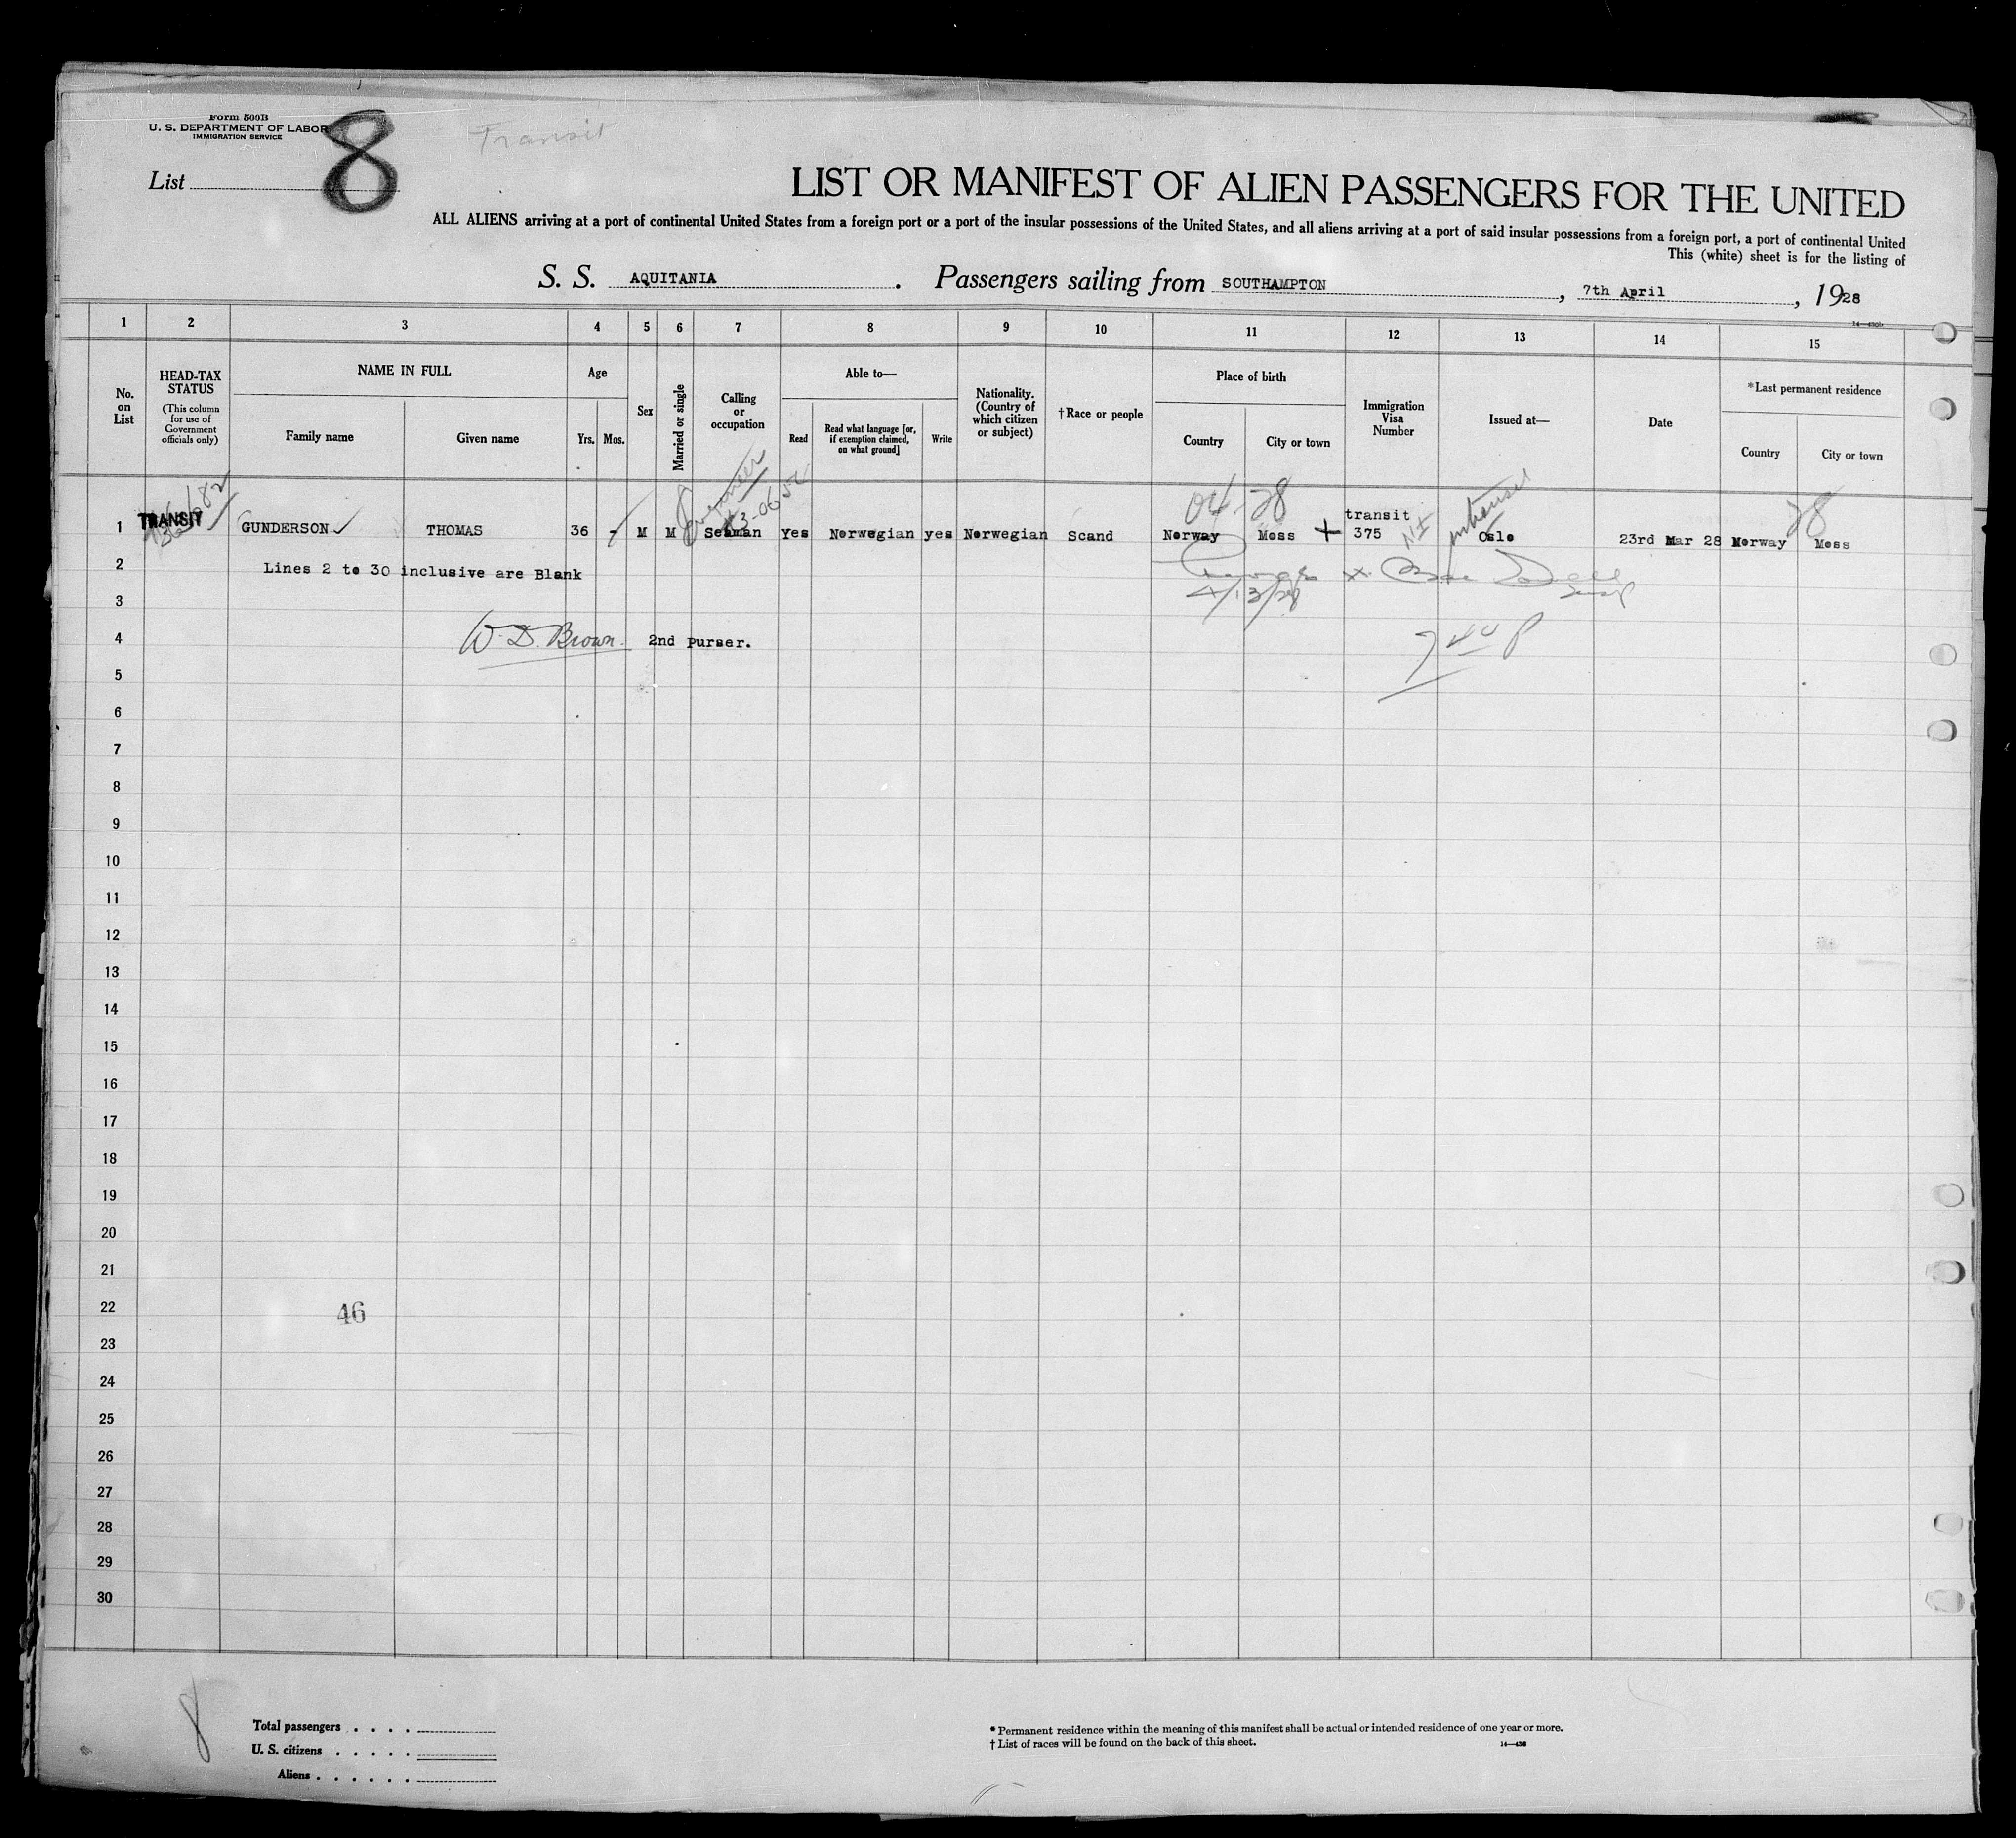 Form 500B
U. S. DEPARTMENT OF LABOR
IMMIGRATION SERVICE
Transit
List 8
LIST OR MANIFEST OF ALIEN PASSENGERS FOR THE UNITED
ALL ALIENS arriving at a port of continental United States from a foreign port or a port of the insular possessions of the United States, and all aliens arriving at a port of said insular possessions from a foreign port, a port of continental United
This (white) sheet is for the listing of
S. S. AQUITANIA. Passengers sailing from SOUTHAMPTON, 7th April, 1928
1 2 3 4 5 6 7 8 9 10 11 12 13 14 15
No. on List
HEAD-TAX STATUS
(This column for use of Government officials only)
NAME IN FULL
Family name
Given name
Age
Yrs. Mos.
Sex
Married or single
Calling or occupation
Able to—
Read
Read what language [or, if exemption claimed, on what ground]
Write
Nationality. (Country of which citizen or subject)
†Race or people
Place of birth
Country
City or town
Immigration Visa Number
Issued at—
Date
*Last permanent residence
Country
City or town
04 28 28
1 TRANSIT GUNDERSON THOMAS 36 - M M Seaman Yes Norwegian yes Norwegian Scand Norway Moss transit 375 Oslo 23rd Mar 28 Norway Moss
2 Lines 2 to 30 inclusive are Blank
3 4/13/28
4 W. D. Brown. 2nd purser.
5
6
7
8
9
10
11
12
13
14
15
16
17
18
19
20
21
22 46
23
24
25
26
27
28
29
30
8
Total passengers . . . .
U. S. citizens . . . . .
Aliens . . . . . .
* Permanent residence within the meaning of this manifest shall be actual or intended residence of one year or more.
† List of races will be found on the back of this sheet.